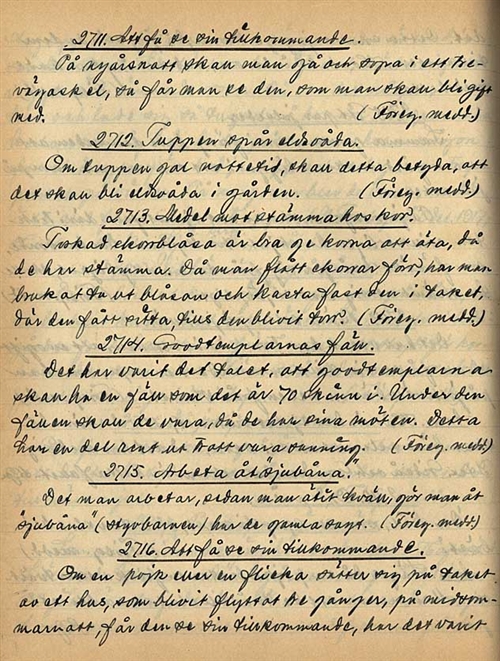 2711. Att få se sin tillkommande.
På nyårsnatt skall man gå och sopa i ett tre-
vägaskel, så får man se den, som man skall bli gift
med. (Föreg. medd.)
2712. Tuppen spår eldsvåda.
Om tuppen gal nattetid, skall detta betyda, att
det skall bli eldsvåda i gården. (Föreg. medd.)
2713. Medel mot stämma hos kor.
Torkad ekorrblåsa är bra ge korna att äta, då
de har stämma. Då man flått ekorrar förr, har man
brukat ta ut blåsan och kasta fast den i taket,
där den fått sitta, tills den blivit torr. (Föreg. medd.)
2714. Goodtemplarnas fäll.
Det har varit det talet, att goodtemplarna
skall ha en fäll som det är 70 skinn i. Under den
fällen skall de vara, då de har sina möten. Detta
har en del rent ut trott vara sanning. (Föreg. medd)
2715. Arbeta åt "sjubåna."
Det man arbetar, sedan man ätit kväll, gör man åt
"sjubåna" (styvbarnen) har de gamla sagt. (Föreg. medd)
2716. Att få se sin tillkommande.
Om en pojk eller en flicka sätter sig på taket
av ett hus, som blivit flyttat tre gånger, på midsom-
marnatt, får den se sin tillkommande, har det varit